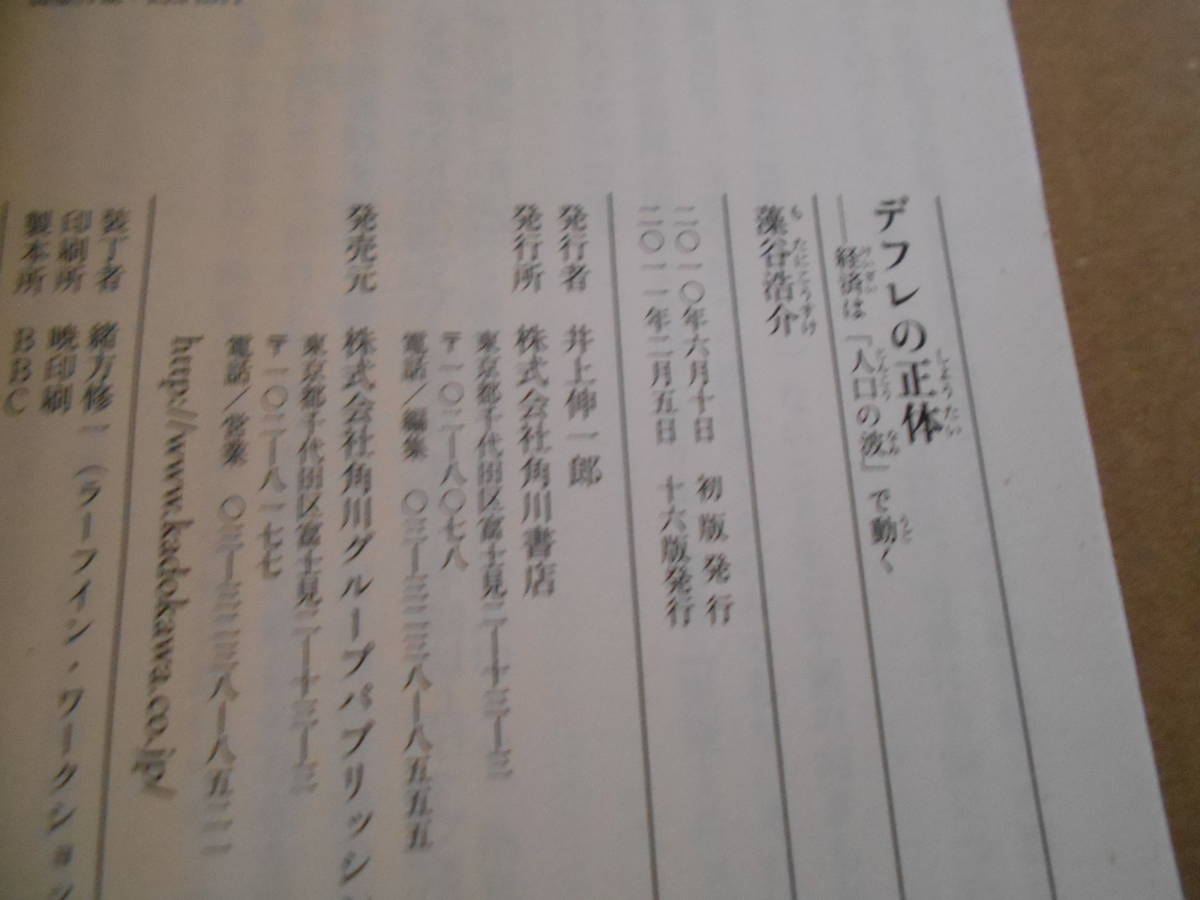 デフレの正体
――経済は「人口の波」で動く
藻谷浩介
二〇一〇年六月十日 初版発行
二〇一一年二月五日 十六版発行
発行者 井上伸一郎
発行所 株式会社角川書店
東京都千代田区富士見二-十三-三
〒一〇二-八〇七八
電話/編集 〇三-三二三八-八五五五
発売元 株式会社角川グループパブリッシ
東京都千代田区富士見二-十三-三
〒一〇二-八一七七
電話/営業 〇三-三二三八-八五二一
http://www.kadokawa.co.jp/
装丁者 緒方修一(ラーフイン・ワークショッ
印刷所 暁印刷
製本所 BBC